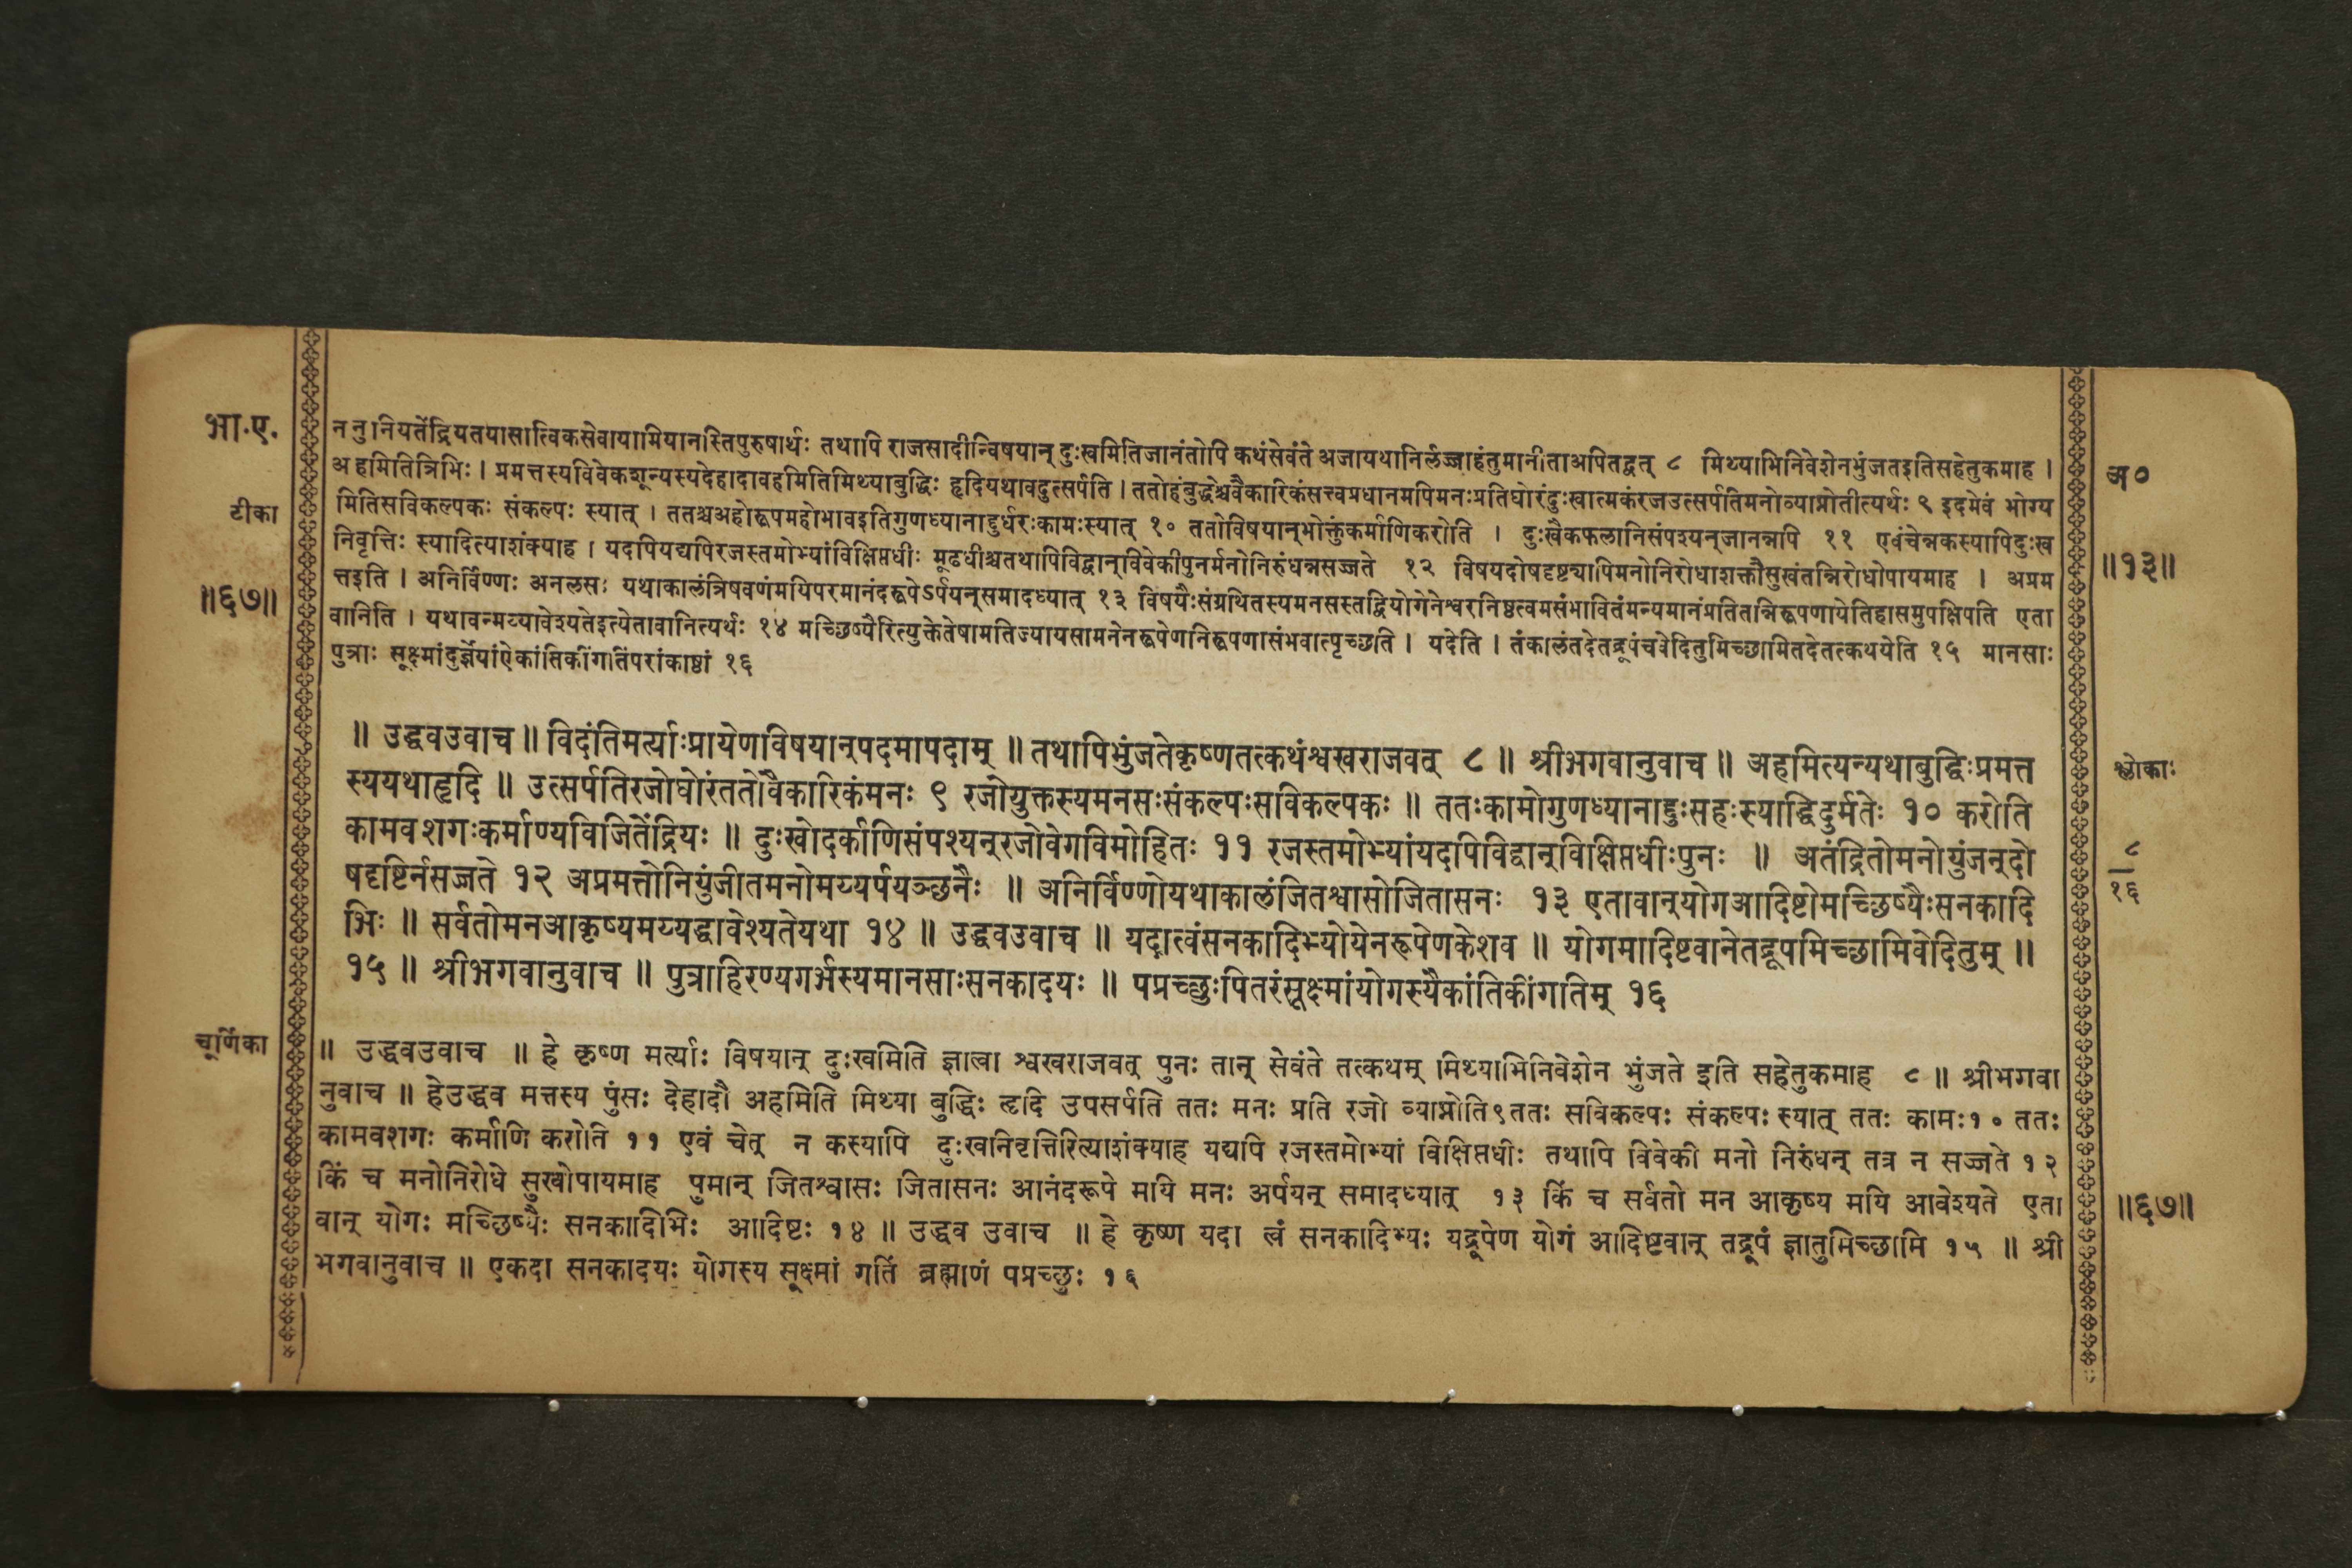 भा.ए.
टीका
॥६७॥
ननुनियतेंद्रियतयासात्विकसेवायामियानस्तिपुरुषार्थः तथापि राजसादीन्विषयान् दुःखमितिजानंतोपि कथंसेवंते अजायथानिर्लज्जाहंतुमानीताअपितद्वत् ८ मिथ्याभिनिवेशेनभुंजतइतिसहेतुकमाह ।
अहमितित्रिभिः । प्रमत्तस्यविवेकशून्यस्यदेहादावहमितिमिथ्याबुद्धिः हृदियथावदुत्सर्पति । ततोहंबुद्धेश्चवैकारिकंसत्त्वप्रधानमपिमनःप्रतिघोरंदुःखात्मकंरजउत्सर्पतिमनोव्याप्नोतीत्यर्थः ९ इदमेवं भोग्य
मितिसविकल्पकः संकल्पः स्यात् । ततश्चअहोरूपमहोभावइतिगुणध्यानाद्दुर्धरःकामःस्यात् १० ततोविषयान्भोक्तुंकर्माणिकरोति । दुःखैकफलानिसंपश्यन्जानन्नपि ११ एवंचेन्नकस्यापिदुःख
निवृत्तिः स्यादित्याशंक्याह । यदपियद्यपिरजस्तमोभ्यांविक्षिप्तधीः मूढधीश्चतथापिविद्वान्विवेकीपुनर्मनोनिरुंधन्नसज्जते १२ विषयदोषदृष्ट्यापिमनोनिरोधाशक्तौसुखंतन्निरोधोपायमाह । अप्रम
त्तइति । अनिर्विण्णः अनलसः यथाकालंत्रिषवणंमयिपरमानंदरूपेऽर्पयन्समादध्यात् १३ विषयैःसंग्रथितस्यमनसस्तद्वियोगेनेश्वरनिष्ठत्वमसंभावितंमन्यमानंप्रतितन्निरूपणायेतिहासमुपक्षिपति एता
वानिति । यथावन्मय्यावेश्यतेइत्येतावानित्यर्थः १४ मच्छिष्यैरित्युक्तेतेषामतिज्यायसामनेनरूपेणनिरूपणासंभवात्पृच्छति । यदेति । तंकालंतदेतद्रूपंचवेदितुमिच्छामितदेतत्कथयेति १५ मानसाः
पुत्राः सूक्ष्मांदुर्ज्ञेयांऐकांतिकींगतिंपरांकाष्ठां १६
अ०
॥१३॥
॥ उद्धवउवाच ॥ विदंतिमर्त्याःप्रायेणविषयान्पदमापदाम् ॥ तथापिभुंजतेकृष्णतत्कथंश्वखराजवत् ८ ॥ श्रीभगवानुवाच ॥ अहमित्यन्यथाबुद्धिःप्रमत्त
स्ययथाहृदि ॥ उत्सर्पतिरजोघोरंततोवैकारिकंमनः ९ रजोयुक्तस्यमनसःसंकल्पःसविकल्पकः ॥ ततःकामोगुणध्यानाद्दुःसहःस्याद्धिदुर्मतेः १० करोति
कामवशगःकर्माण्यविजितेंद्रियः ॥ दुःखोदर्काणिसंपश्यन्रजोवेगविमोहितः ११ रजस्तमोभ्यांयदपिविद्वान्विक्षिप्तधीःपुनः ॥ अतंद्रितोमनोयुंजन्दो
षदृष्टिर्नसज्जते १२ अप्रमत्तोनियुंजीतमनोमय्यर्पयञ्छनैः ॥ अनिर्विण्णोयथाकालंजितश्वासोजितासनः १३ एतावान्योगआदिष्टोमच्छिष्यैःसनकादि
भिः ॥ सर्वतोमनआकृष्यमय्यद्धावेश्यतेयथा १४ ॥ उद्धवउवाच ॥ यदात्वंसनकादिभ्योयेनरूपेणकेशव ॥ योगमादिष्टवानेतद्रूपमिच्छामिवेदितुम् ॥
१५ ॥ श्रीभगवानुवाच ॥ पुत्राहिरण्यगर्भस्यमानसाःसनकादयः ॥ पप्रच्छुःपितरंसूक्ष्मांयोगस्यैकांतिकींगतिम् १६
श्लोकाः
८
१६
चूर्णिका
॥ उद्धवउवाच ॥ हे कृष्ण मर्त्याः विषयान् दुःखमिति ज्ञात्वा श्वखराजवत् पुनः तान् सेवंते तत्कथम् मिथ्याभिनिवेशेन भुंजते इति सहेतुकमाह ८ ॥ श्रीभगवा
नुवाच ॥ हेउद्धव मत्तस्य पुंसः देहादौ अहमिति मिथ्या बुद्धिः हृदि उपसर्पति ततः मनः प्रति रजो व्याप्नोति९ततः सविकल्पः संकल्पः स्यात् ततः कामः१० ततः
कामवशगः कर्माणि करोति ११ एवं चेत् न कस्यापि दुःखनिवृत्तिरित्याशंक्याह यद्यपि रजस्तमोभ्यां विक्षिप्तधीः तथापि विवेकी मनो निरुंधन् तत्र न सज्जते १२
किं च मनोनिरोधे सुखोपायमाह पुमान् जितश्वासः जितासनः आनंदरूपे मयि मनः अर्पयन् समादध्यात् १३ किं च सर्वतो मन आकृष्य मयि आवेश्यते एता
वान् योगः मच्छिष्यैः सनकादिभिः आदिष्टः १४ ॥ उद्धव उवाच ॥ हे कृष्ण यदा त्वं सनकादिभ्यः यद्रूपेण योगं आदिष्टवान् तद्रूपं ज्ञातुमिच्छामि १५ ॥ श्री
भगवानुवाच ॥ एकदा सनकादयः योगस्य सूक्ष्मां गतिं ब्रह्माणं पप्रच्छुः १६
॥६७॥